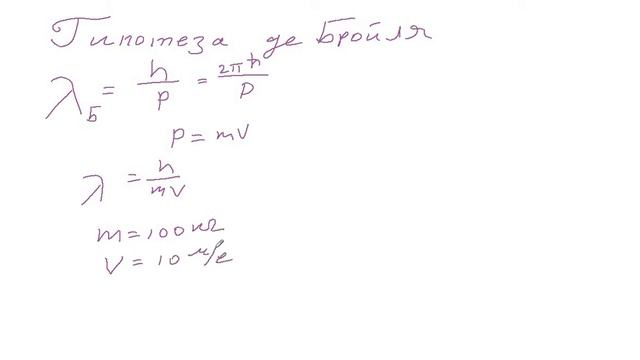 Гипотеза де Бройля
λ_Б = h/p = 2πħ/p
p = mV
λ = h/mV
m = 100 кг
V = 10 м/с